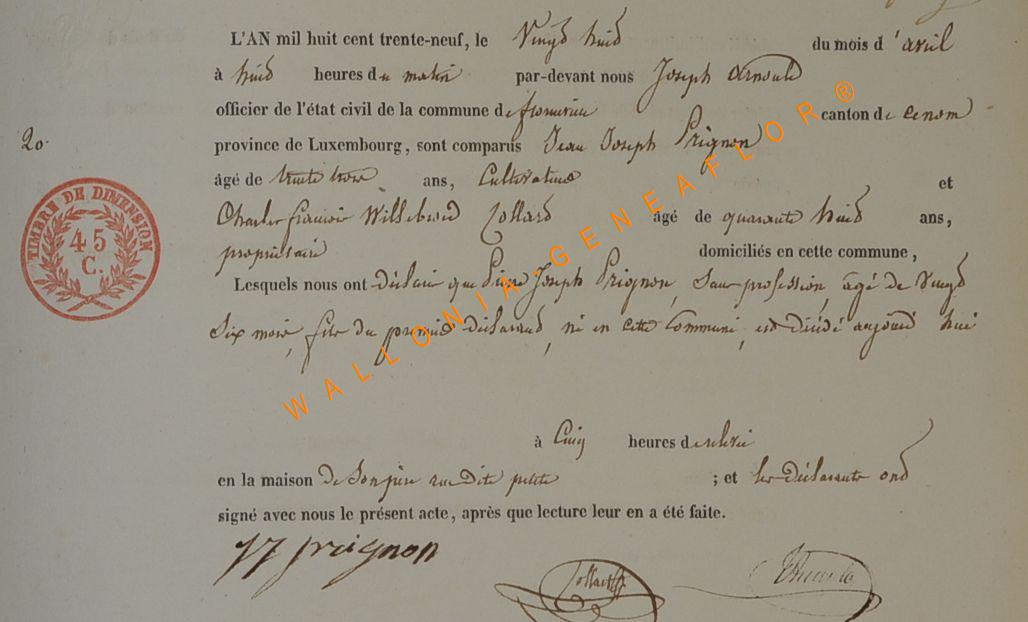 L'AN mil huit cent trente-neuf, le Vingd huid du mois d'avril
à huid heures du matin par-devant nous Joseph Arnould
officier de l'état civil de la commune de canton de
20.
province de Luxembourg, sont comparus Jean Joseph Prignon
âgé de trente trois ans, Cultivateur et
Charles françois Willebrord Collard âgé de quarante huid ans,
propriétaire domiciliés en cette commune,
Lesquels nous ont déclaré que Pierre Joseph Prignon, Sans profession, âgé de Vingd
Six mois, fils du premier déclarand, né en cette Commune, est décédé aujourd hui
à Cinq heures de
en la maison de Son père rue dite petite ; et les déclarants ond
signé avec nous le présent acte, après que lecture leur en a été faite.
JJ prignon
TIMBRE DE DIMENSION
45
C.
WALLONIA-GENEAFLOR®